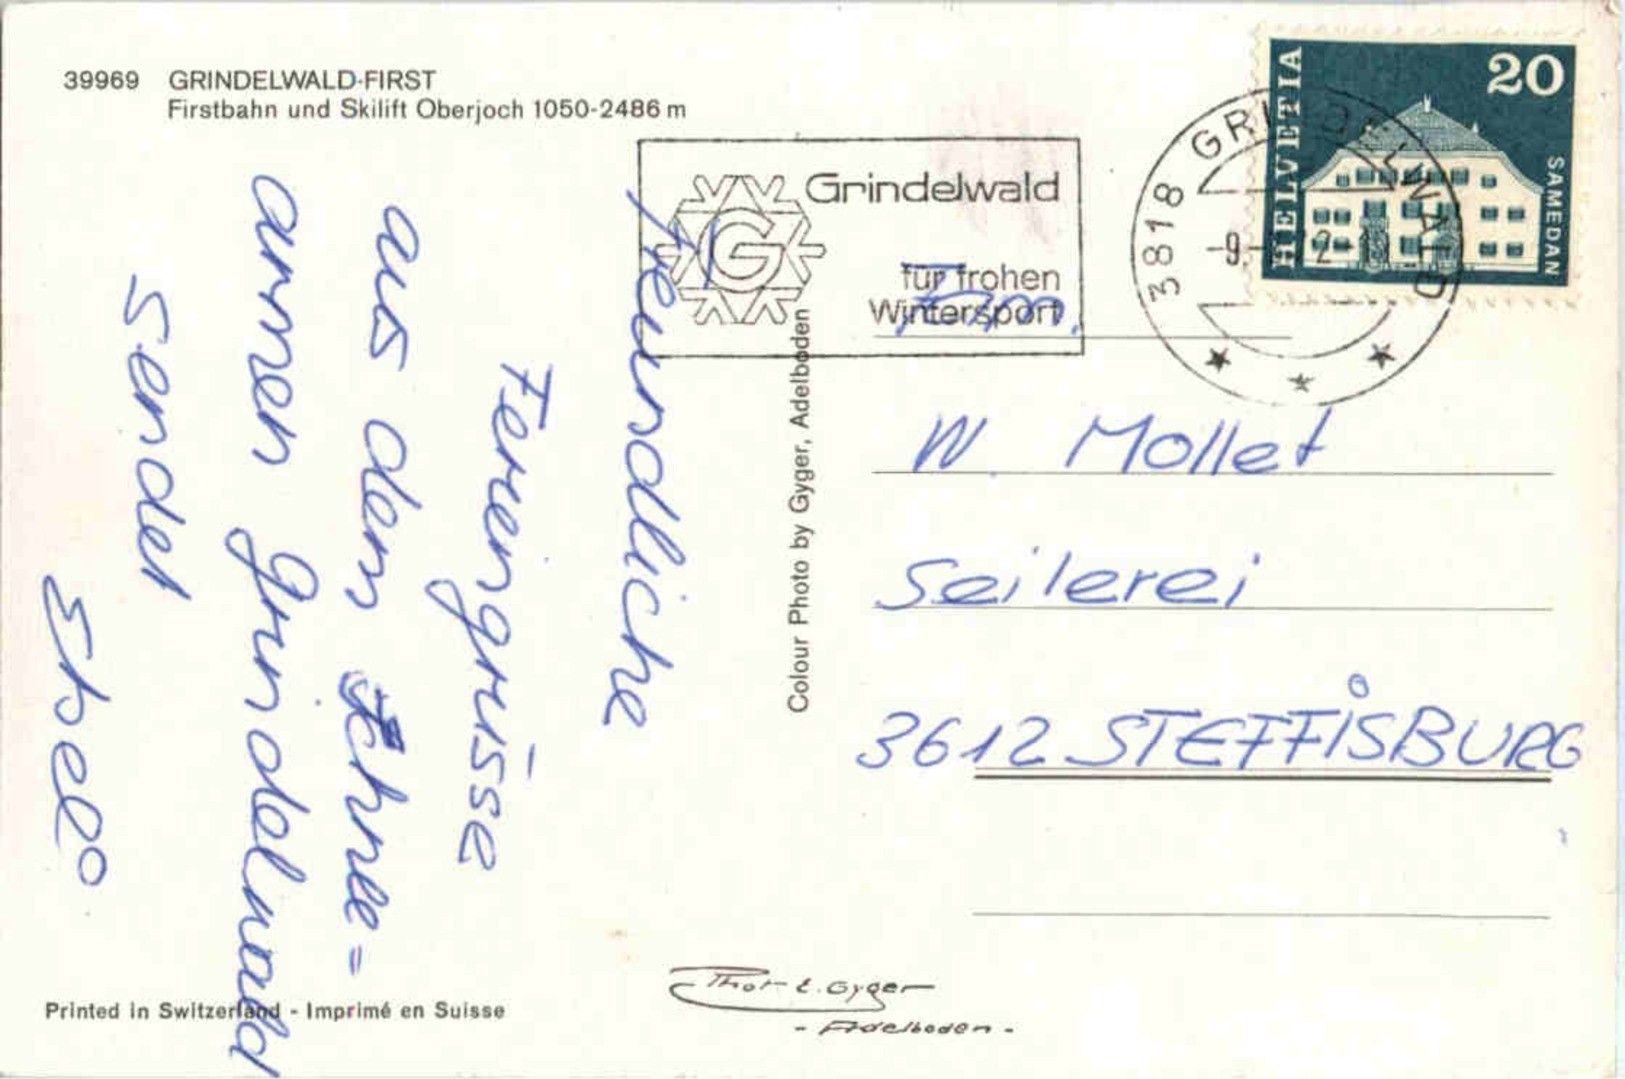 39969 GRINDELWALD-FIRST
Firstbahn und Skilift Oberjoch 1050-2486 m
Grindelwald
G
für frohen
Wintersport
3818 GRINDELWALD
-9.
HELVETIA
20
SAMEDAN
freundliche
Feriengrüsse
aus dem Schnee=
armen Grindelwald
sendet
Colour Photo by Gyger, Adelboden
Fam.
W. Mollet
Seilerei
3612 STEFFISBURG
Printed in Switzerland - Imprimé en Suisse
Phot E. Gyger
- Adelboden -